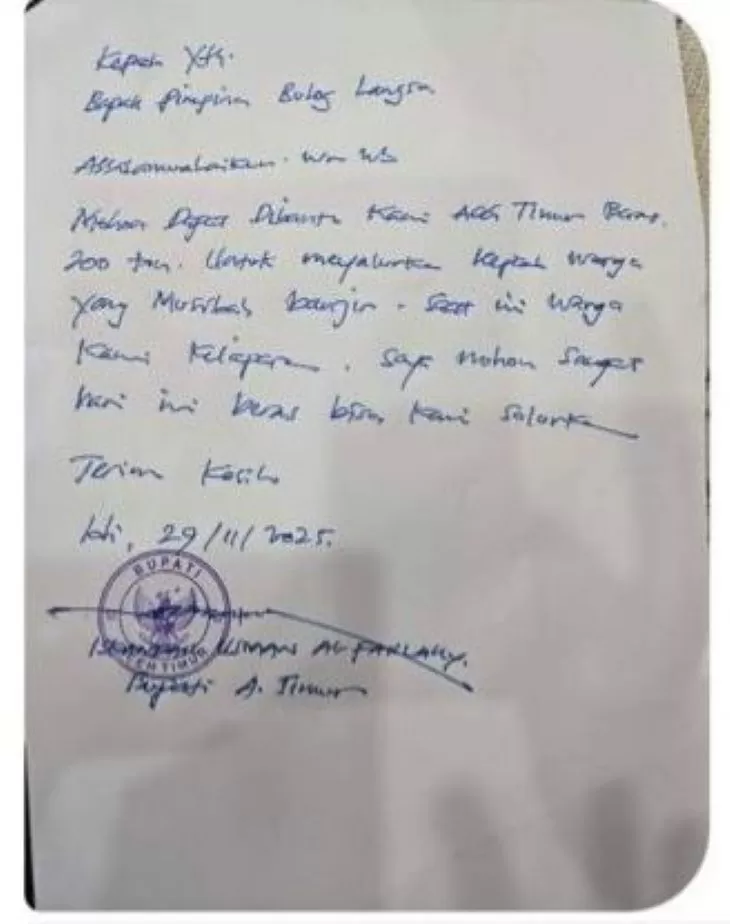 Kepada Yth.
Bapak Pimpinan Bulog Langsa
Assalamualaikum. Wr Wb
Mohon Dapat Dibantu Kami Aceh Timur Beras.
200 ton. Untuk menyalurkan kepada warga
yang Musibah banjir. Saat ini warga
kami kelaparan. Saya mohon sangat
hari ini beras bisa kami salurkan
Terima Kasih
Idi, 29/11/2025.
BUPATI
ACEH TIMUR
USMAN AL FARLAKY.
Bupati A. Timur